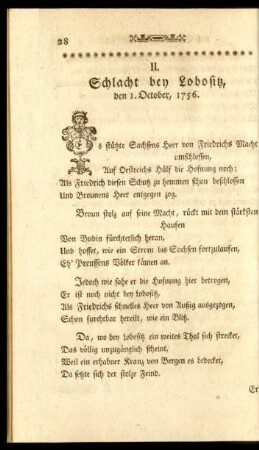 28
II.
Schlacht bey Lobositz,
den 1. October, 1756.
Es stützte Sachsens Heer von Friedrichs Macht
umschlossen,
Auf Oestreichs Hülf die Hofnung noch:
Als Friedrich diesen Schutz zu hemmen schon beschlossen
Und Brounens Heer entgegen zog.
Broun stolz auf seine Macht, rückt mit dem stärksten
Haufen
Von Budin fürchterlich heran,
Und hoffet, wie ein Strom bis Sachsen fortzulaufen,
Eh' Preussens Völker kämen an.
Jedoch wie sahe er die Hofnung hier betrogen,
Er ist noch nicht bey Lobositz,
Als Friedrichs schnelles Heer von Außig ausgezogen,
Schon furchtbar hereilt, wie ein Blitz.
Da, wo bey Lobositz ein weites Thal sich strecket,
Das völlig unzugänglich scheint,
Weil ein erhabner Kranz von Bergen es bedecket,
Da setzte sich der stolze Feind.
Er